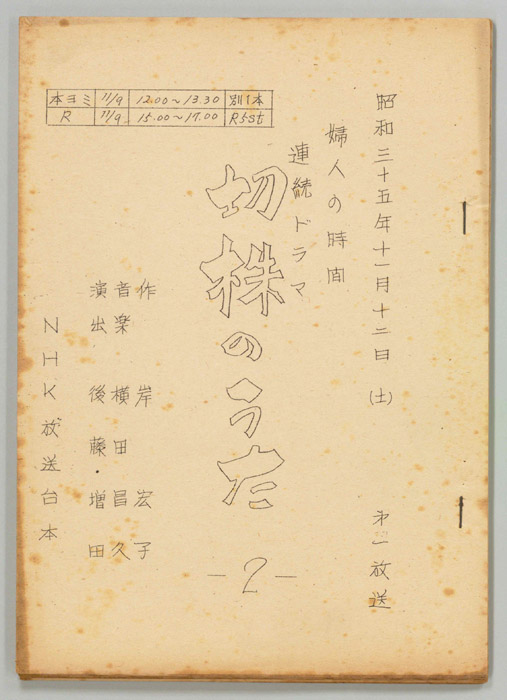 本ヨミ 11/9 12.00～13.30 別1本
R 11/9 15.00～17.00 R5st
昭和三十五年十一月十二日(土) 第一放送
婦人の時間
連続ドラマ
切株のうた
-2-
作 岸 宏子
音楽 横田昌久
演出 後藤・増田
NHK放送台本